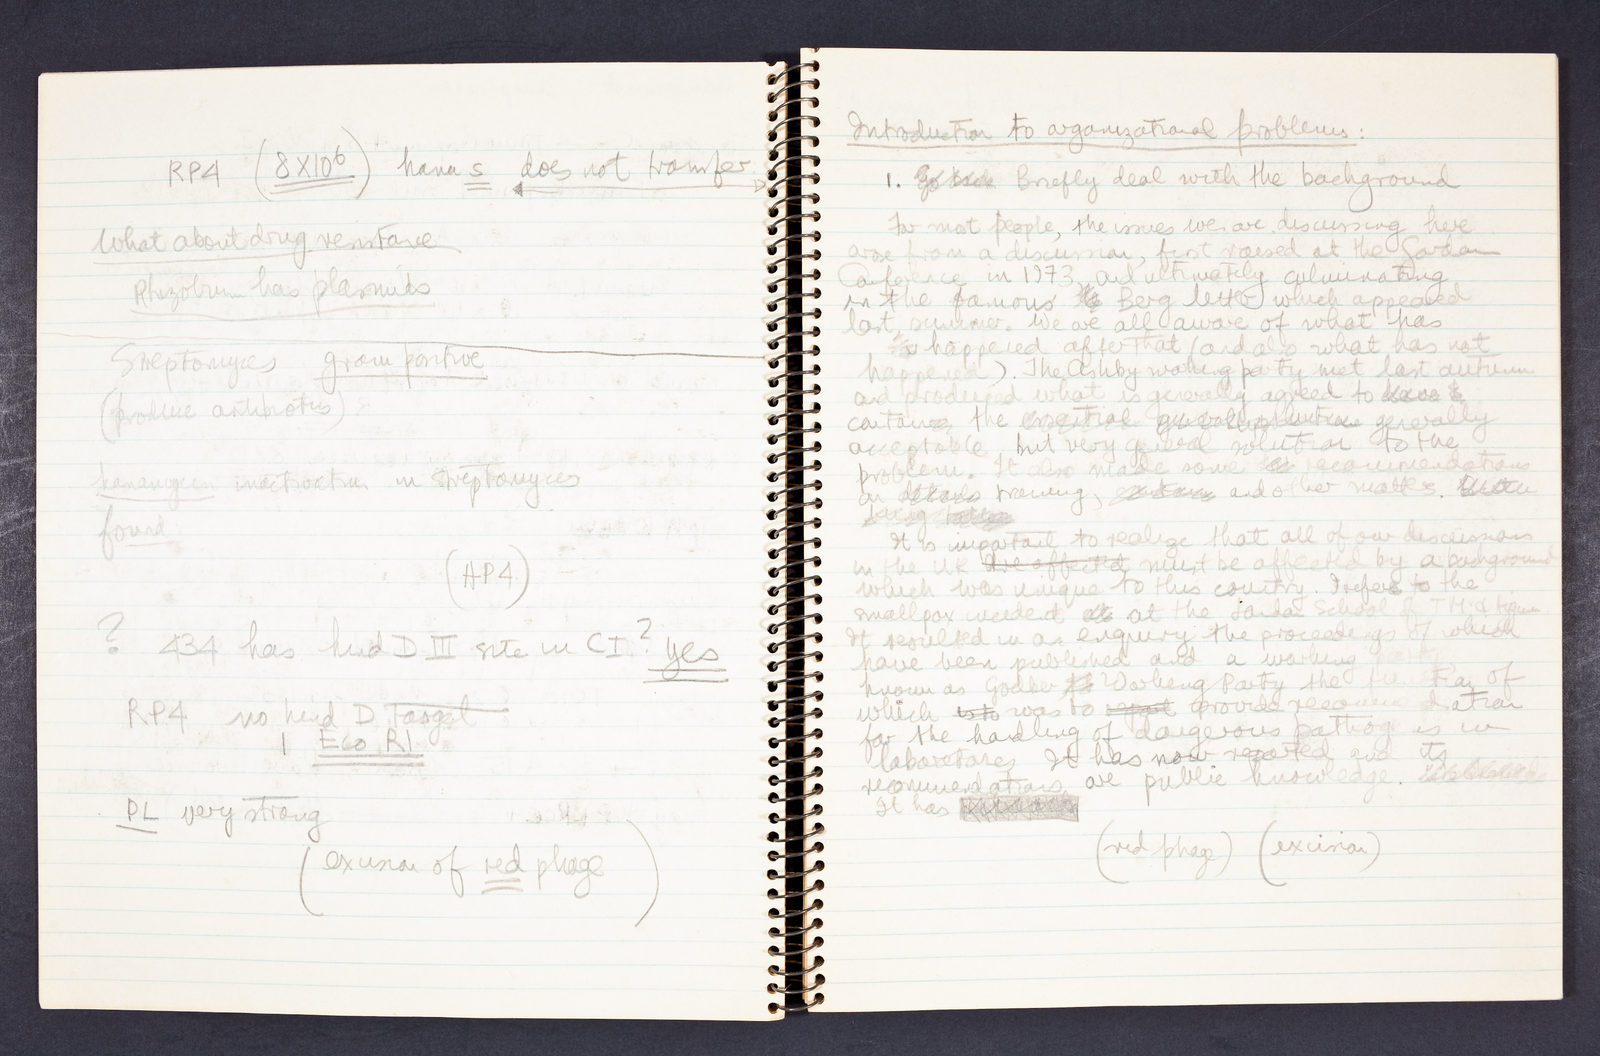 RP4 (8X10⁶) kana s does not transfer
What about drug resistance
Rhizobium has plasmids
Streptomyces gram positive
(produce antibiotics)
kanamycin inactivation in Streptomyces
found
(AP4)
? 434 has hind D III site in CI? yes
RP4 no hind D Target
1 Eco RI
PL very strong
(excision of red phage)
Introduction to organizational problems:
1. Briefly deal with the background
For most people, the issues we are discussing here
arose from a discussion, first raised at the Gordon
Conference in 1973 and ultimately culminating
in the famous Berg letter which appeared
last summer. We are all aware of what has
happened after that (and also what has not
happened). The Ashby working party met last autumn
and produced what is generally agreed to
contain the essential generally
acceptable but very general solution to the
problem. It also made some recommendations
on training, and other matters.
It is important to realize that all of our discussions
in the UK are affected must be affected by a background
which was unique to this country. I refer to the
smallpox incident at the London School of TM & Hygiene
It resulted in an enquiry the proceedings of which
have been published and a working
known as Godber Working Party the of
which was to provide recommendation
for the handling of dangerous pathogens in
laboratories It has now reported and its
recommendations are public knowledge.
It has
(red phage) (excision)